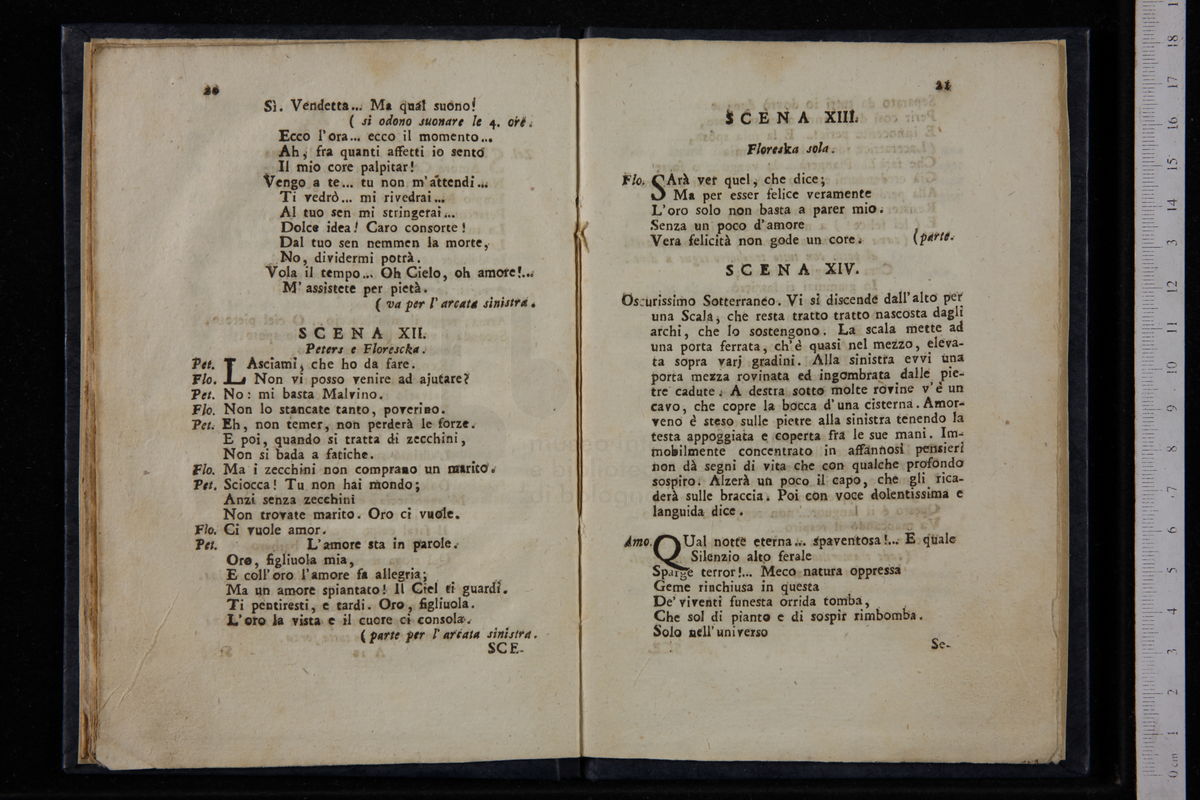 20
Sì. Vendetta... Ma qual suono!
( si odono suonare le 4. ore.
Ecco l'ora... ecco il momento...
Ah, fra quanti affetti io sento
Il mio core palpitar!
Vengo a te... tu non m'attendi...
Ti vedrò... mi rivedrai...
Al tuo sen mi stringerai...
Dolce idea! Caro consorte!
Dal tuo sen nemmen la morte,
No, dividermi potrà.
Vola il tempo... Oh Cielo, oh amore!...
M' assistete per pietà.
( va per l' arcata sinistra.
SCENA XII.
Peters e Florescka.
Pet. LAsciami, che ho da fare.
Flo. Non vi posso venire ad ajutare?
Pet. No: mi basta Malvino.
Flo. Non lo stancate tanto, poverino.
Pet. Eh, non temer, non perderà le forze.
E poi, quando si tratta di zecchini,
Non si bada a fatiche.
Flo. Ma i zecchini non comprano un marito.
Pet. Sciocca! Tu non hai mondo;
Anzi senza zecchini
Non trovate marito. Oro ci vuole.
Flo. Ci vuole amor.
Pet. L'amore sta in parole.
Oro, figliuola mia,
E coll'oro l'amore fa allegria;
Ma un amore spiantato! Il Ciel ti guardi.
Ti pentiresti, e tardi. Oro, figliuola.
L'oro la vista e il cuore ci consola.
( parte per l' arcata sinistra.
SCE-
21
SCENA XIII.
Floreska sola.
Flo. SArà ver quel, che dice;
Ma per esser felice veramente
L'oro solo non basta a parer mio.
Senza un poco d'amore
Vera felicità non gode un core. (parte.
SCENA XIV.
Oscurissimo Sotterraneo. Vi si discende dall'alto per
una Scala, che resta tratto tratto nascosta dagli
archi, che lo sostengono. La scala mette ad
una porta ferrata, ch'è quasi nel mezzo, eleva-
ta sopra varj gradini. Alla sinistra evvi una
porta mezza rovinata ed ingombrata dalle pie-
tre cadute. A destra sotto molte rovine v'è un
cavo, che copre la bocca d'una cisterna. Amor-
veno è steso sulle pietre alla sinistra tenendo la
testa appoggiata e coperta fra le sue mani. Im-
mobilmente concentrato in affannosi pensieri
non dà segni di vita che con qualche profondo
sospiro. Alzerà un poco il capo, che gli rica-
derà sulle braccia. Poi con voce dolentissima e
languida dice.
Amo. QUal notte eterna... spaventosa!... E quale
Silenzio alto ferale
Sparge terror!... Meco natura oppressa
Geme rinchiusa in questa
De' viventi funesta orrida tomba,
Che sol di pianto e di sospir rimbomba.
Solo nell'universo
Se-